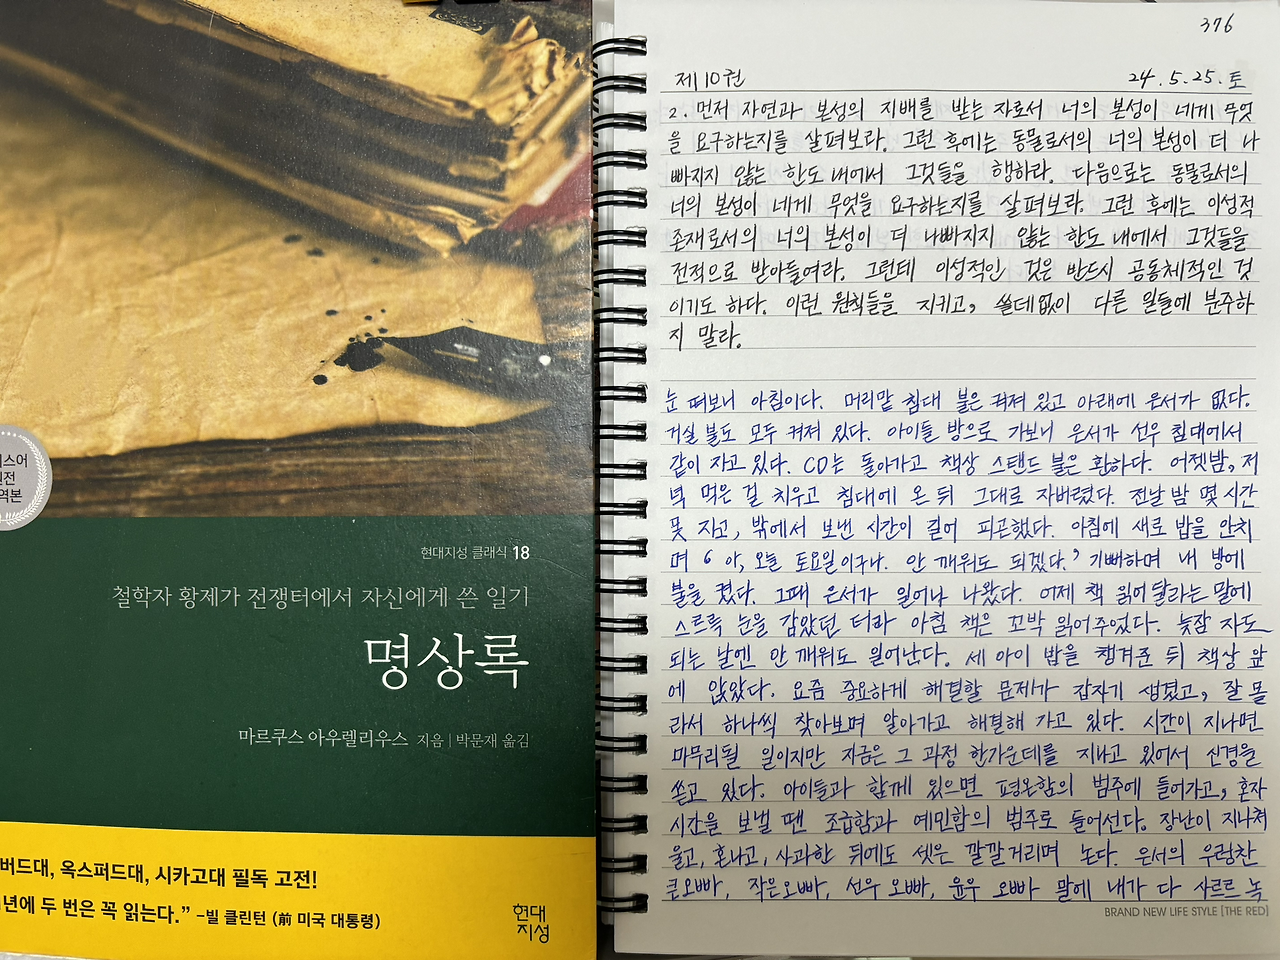 스어
원전
역본
현대지성 클래식 18
철학자 황제가 전쟁터에서 자신에게 쓴 일기
명상록
마르쿠스 아우렐리우스 지음 | 박문재 옮김
버드대, 옥스퍼드대, 시카고대 필독 고전!
년에 두 번은 꼭 읽는다.” –빌 클린턴 (前 미국 대통령)
현대
지성
376
제10권 24.5.25.토
2. 먼저 자연과 본성의 지배를 받는 자로서 너의 본성이 네게 무엇
을 요구하는지를 살펴보라. 그런 후에는 동물로서의 너의 본성이 더 나
빠지지 않는 한도 내에서 그것들을 행하라. 다음으로는 동물로서의
너의 본성이 네게 무엇을 요구하는지를 살펴보라. 그런 후에는 이성적
존재로서의 너의 본성이 더 나빠지지 않는 한도 내에서 그것들을
전적으로 받아들여라. 그런데 이성적인 것은 반드시 공동체적인 것
이기도 하다. 이런 원칙들을 지키고, 쓸데없이 다른 일들에 분주하
지 말라.
눈 떠보니 아침이다. 머리맡 침대 불은 켜져 있고 아래에 은서가 없다.
거실 불도 모두 켜져 있다. 아이들 방으로 가보니 은서가 선우 침대에서
같이 자고 있다. CD는 돌아가고 책상 스탠드 불은 환하다. 어젯밤, 저
녁 먹은 걸 치우고 침대에 온 뒤 그대로 자버렸다. 전날 밤 몇 시간
못 자고, 밖에서 보낸 시간이 길어 피곤했다. 아침에 새로 밥을 안치
며 ‘아, 오늘 토요일이구나. 안 깨워도 되겠다.’ 기뻐하며 내 방에
불을 켰다. 그때 은서가 일어나 나왔다. 어제 책 읽어달라는 말에
스르륵 눈을 감았던 터라 아침 책은 꼬박 읽어주었다. 늦잠 자도
되는 날엔 안 깨워도 일어난다. 세 아이 밥을 챙겨준 뒤 책상 앞
에 앉았다. 요즘 중요하게 해결할 문제가 갑자기 생겼고, 잘 몰
라서 하나씩 찾아보며 알아가고 해결해 가고 있다. 시간이 지나면
마무리될 일이지만 지금은 그 과정 한가운데를 지나고 있어서 신경을
쓰고 있다. 아이들과 함께 있으면 평온함의 범주에 들어가고, 혼자
시간을 보낼 땐 조급함과 예민함의 범주로 들어선다. 장난이 지나쳐
울고, 혼나고, 사과한 뒤에도 셋은 깔깔거리며 논다. 은서의 우렁찬
큰오빠, 작은오빠, 선우 오빠, 윤우 오빠 말에 내가 다 사르르 녹
BRAND NEW LIFE STYLE [THE RED]